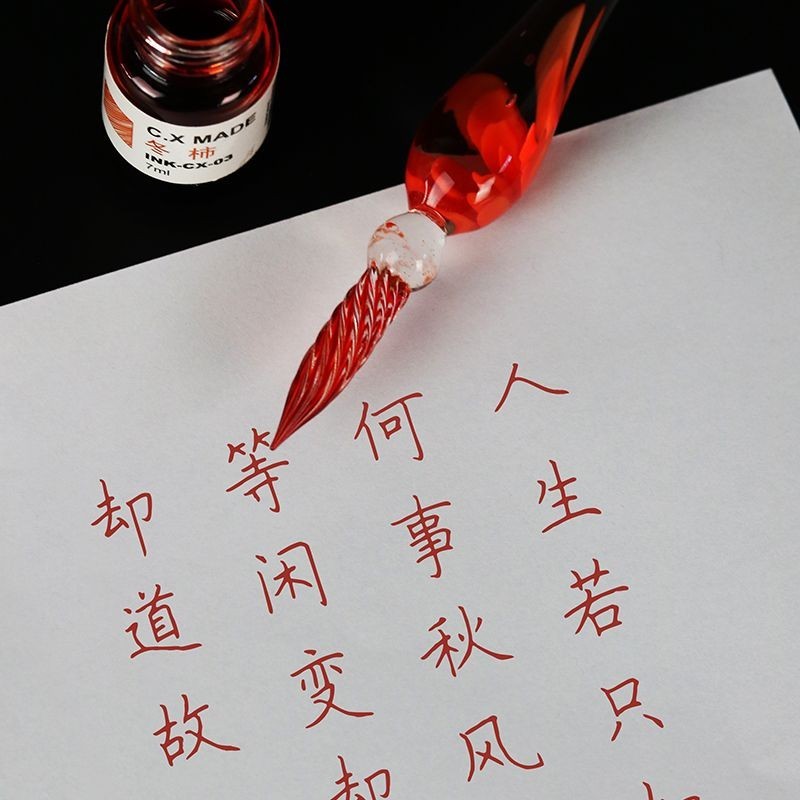 C.X MADE
冬柿
INK-CX-03
7ml
人生若只
何事秋风
等闲变却
却道故